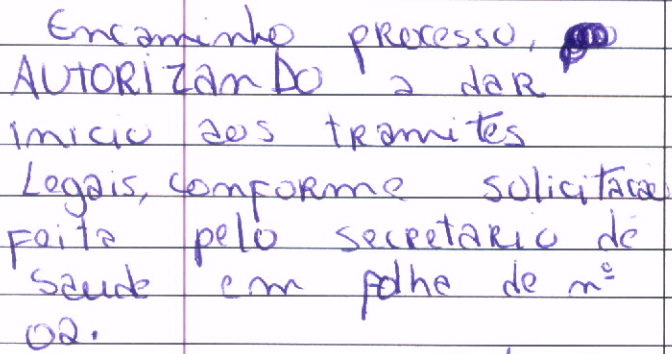 Encaminho processo,
AUTORIZANDO a dar
inicio aos tramites
Legais, comforme solicitacao
Feita pelo secretario de
saude em folha de nº
02.